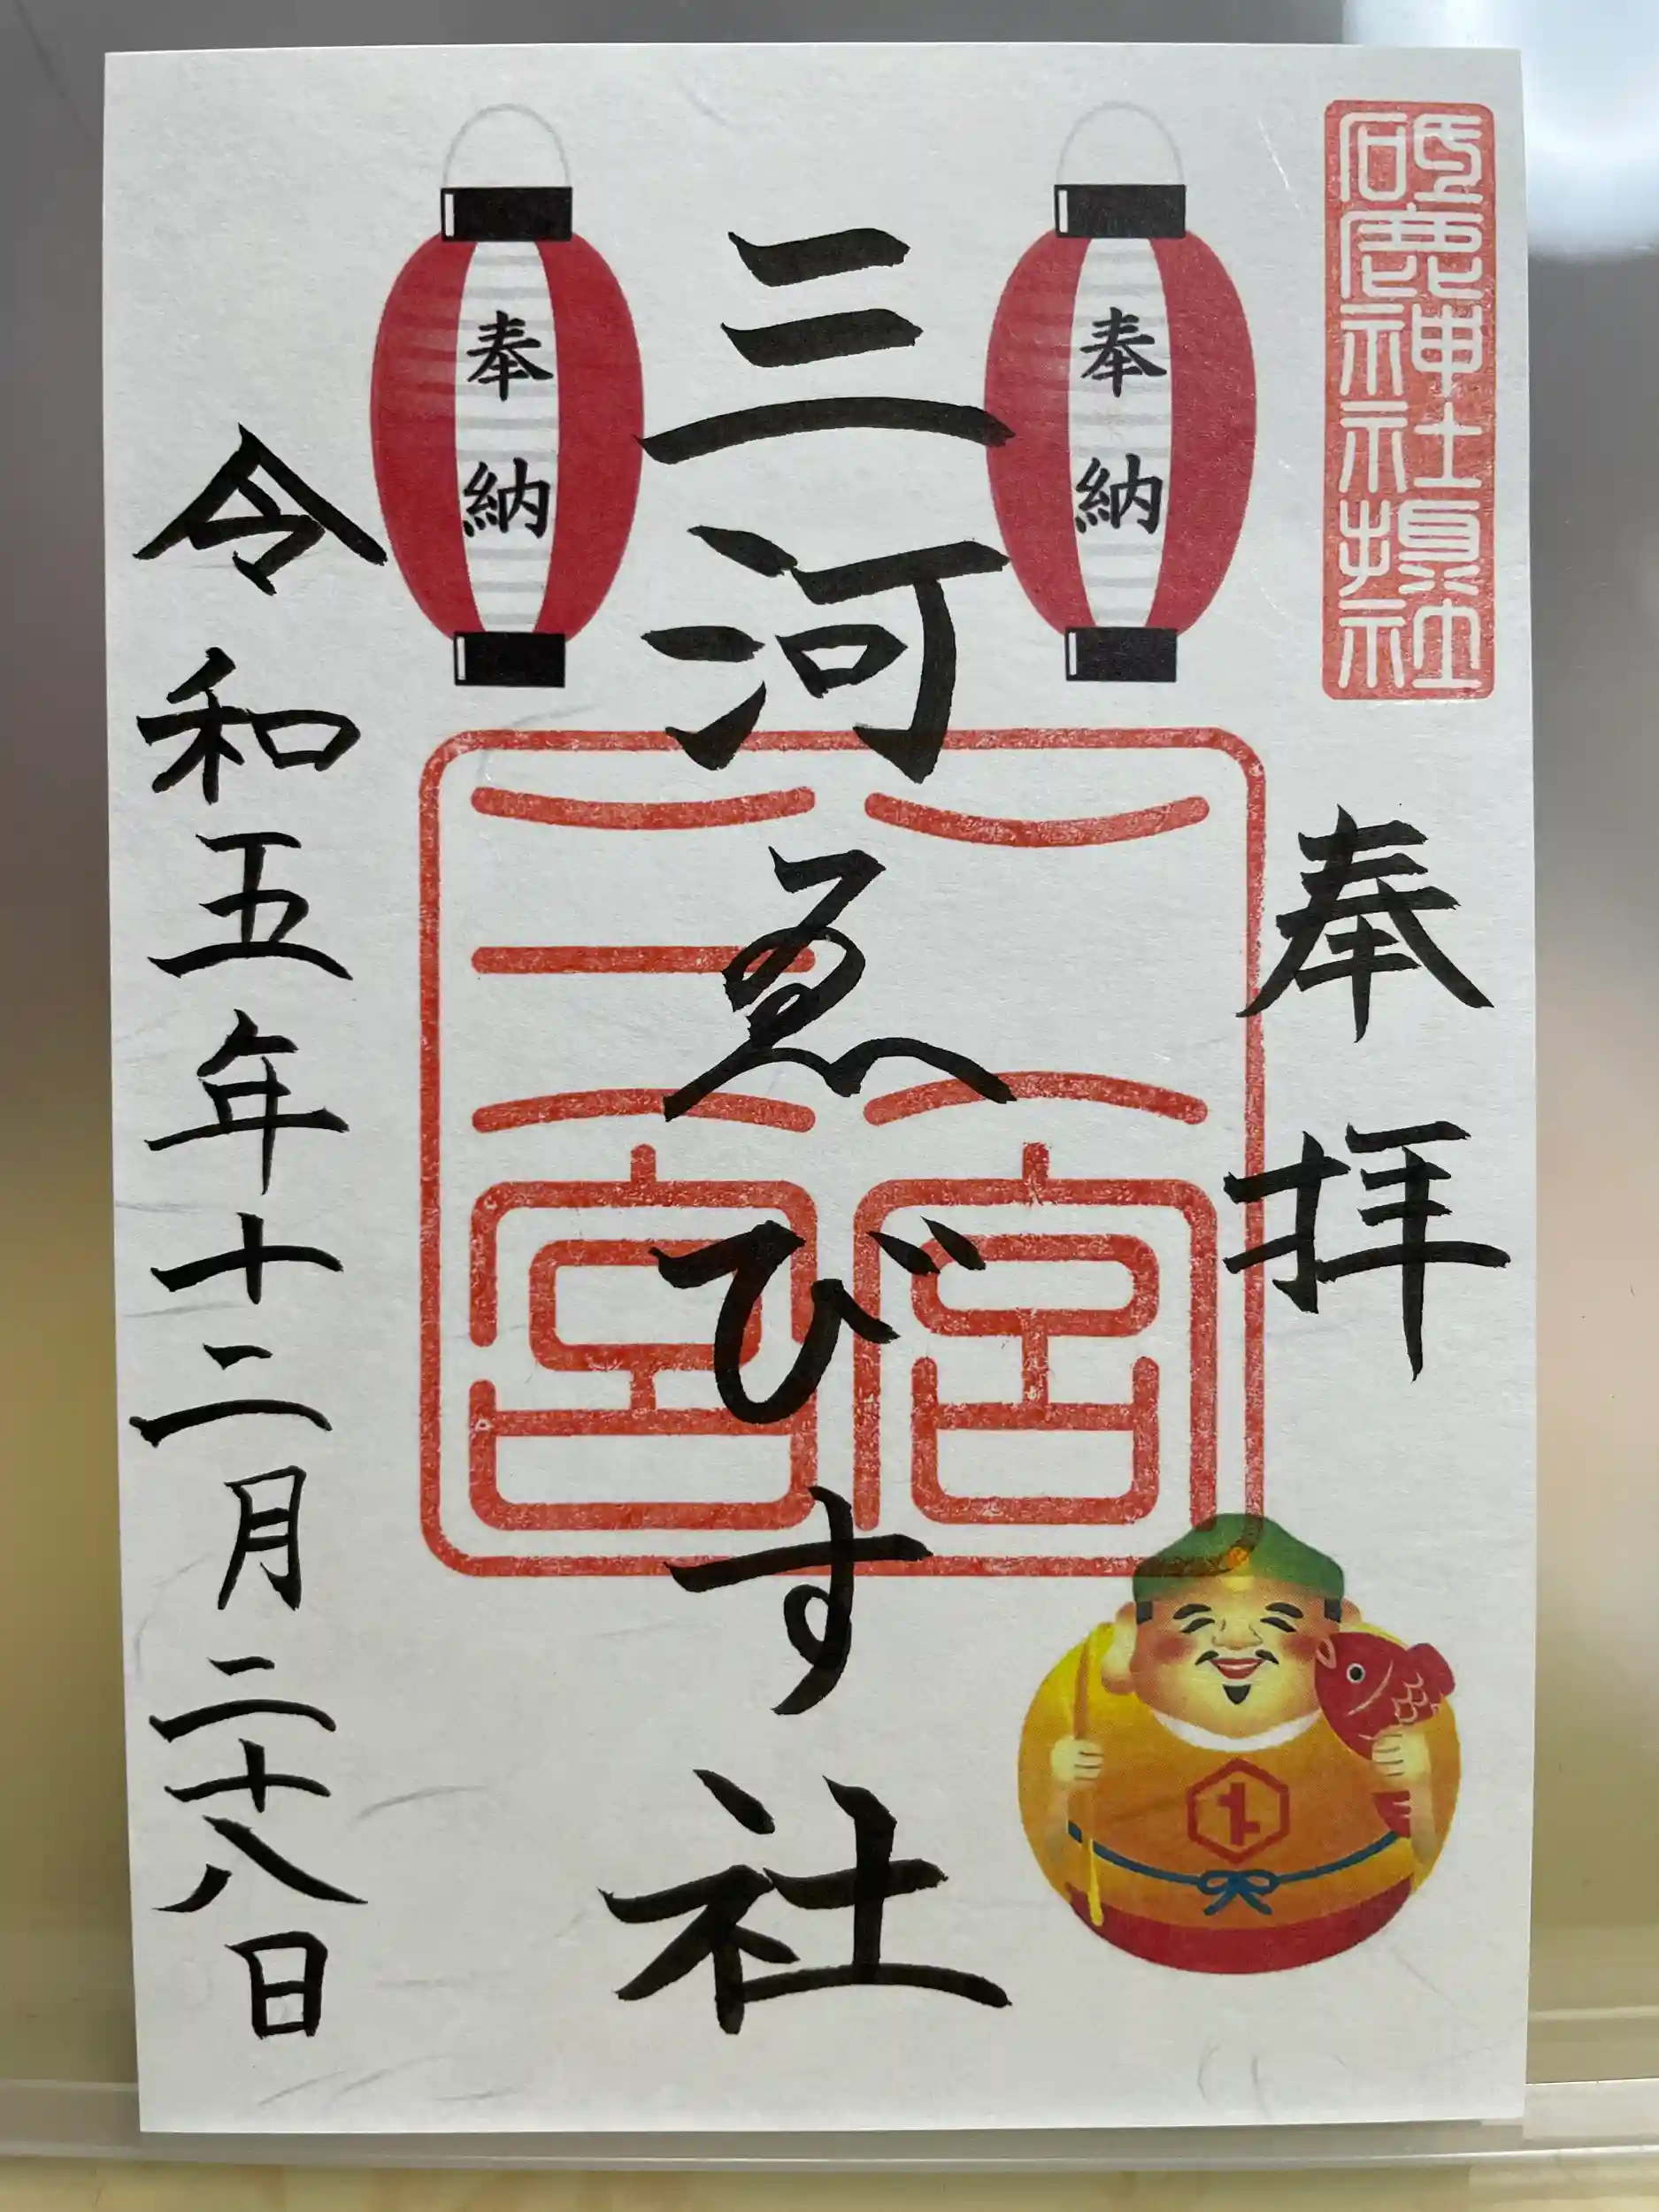 砥鹿神社境社
奉拝
奉納
三河ゑびす社
奉納
二宮
三宮
令和五年十二月二十八日